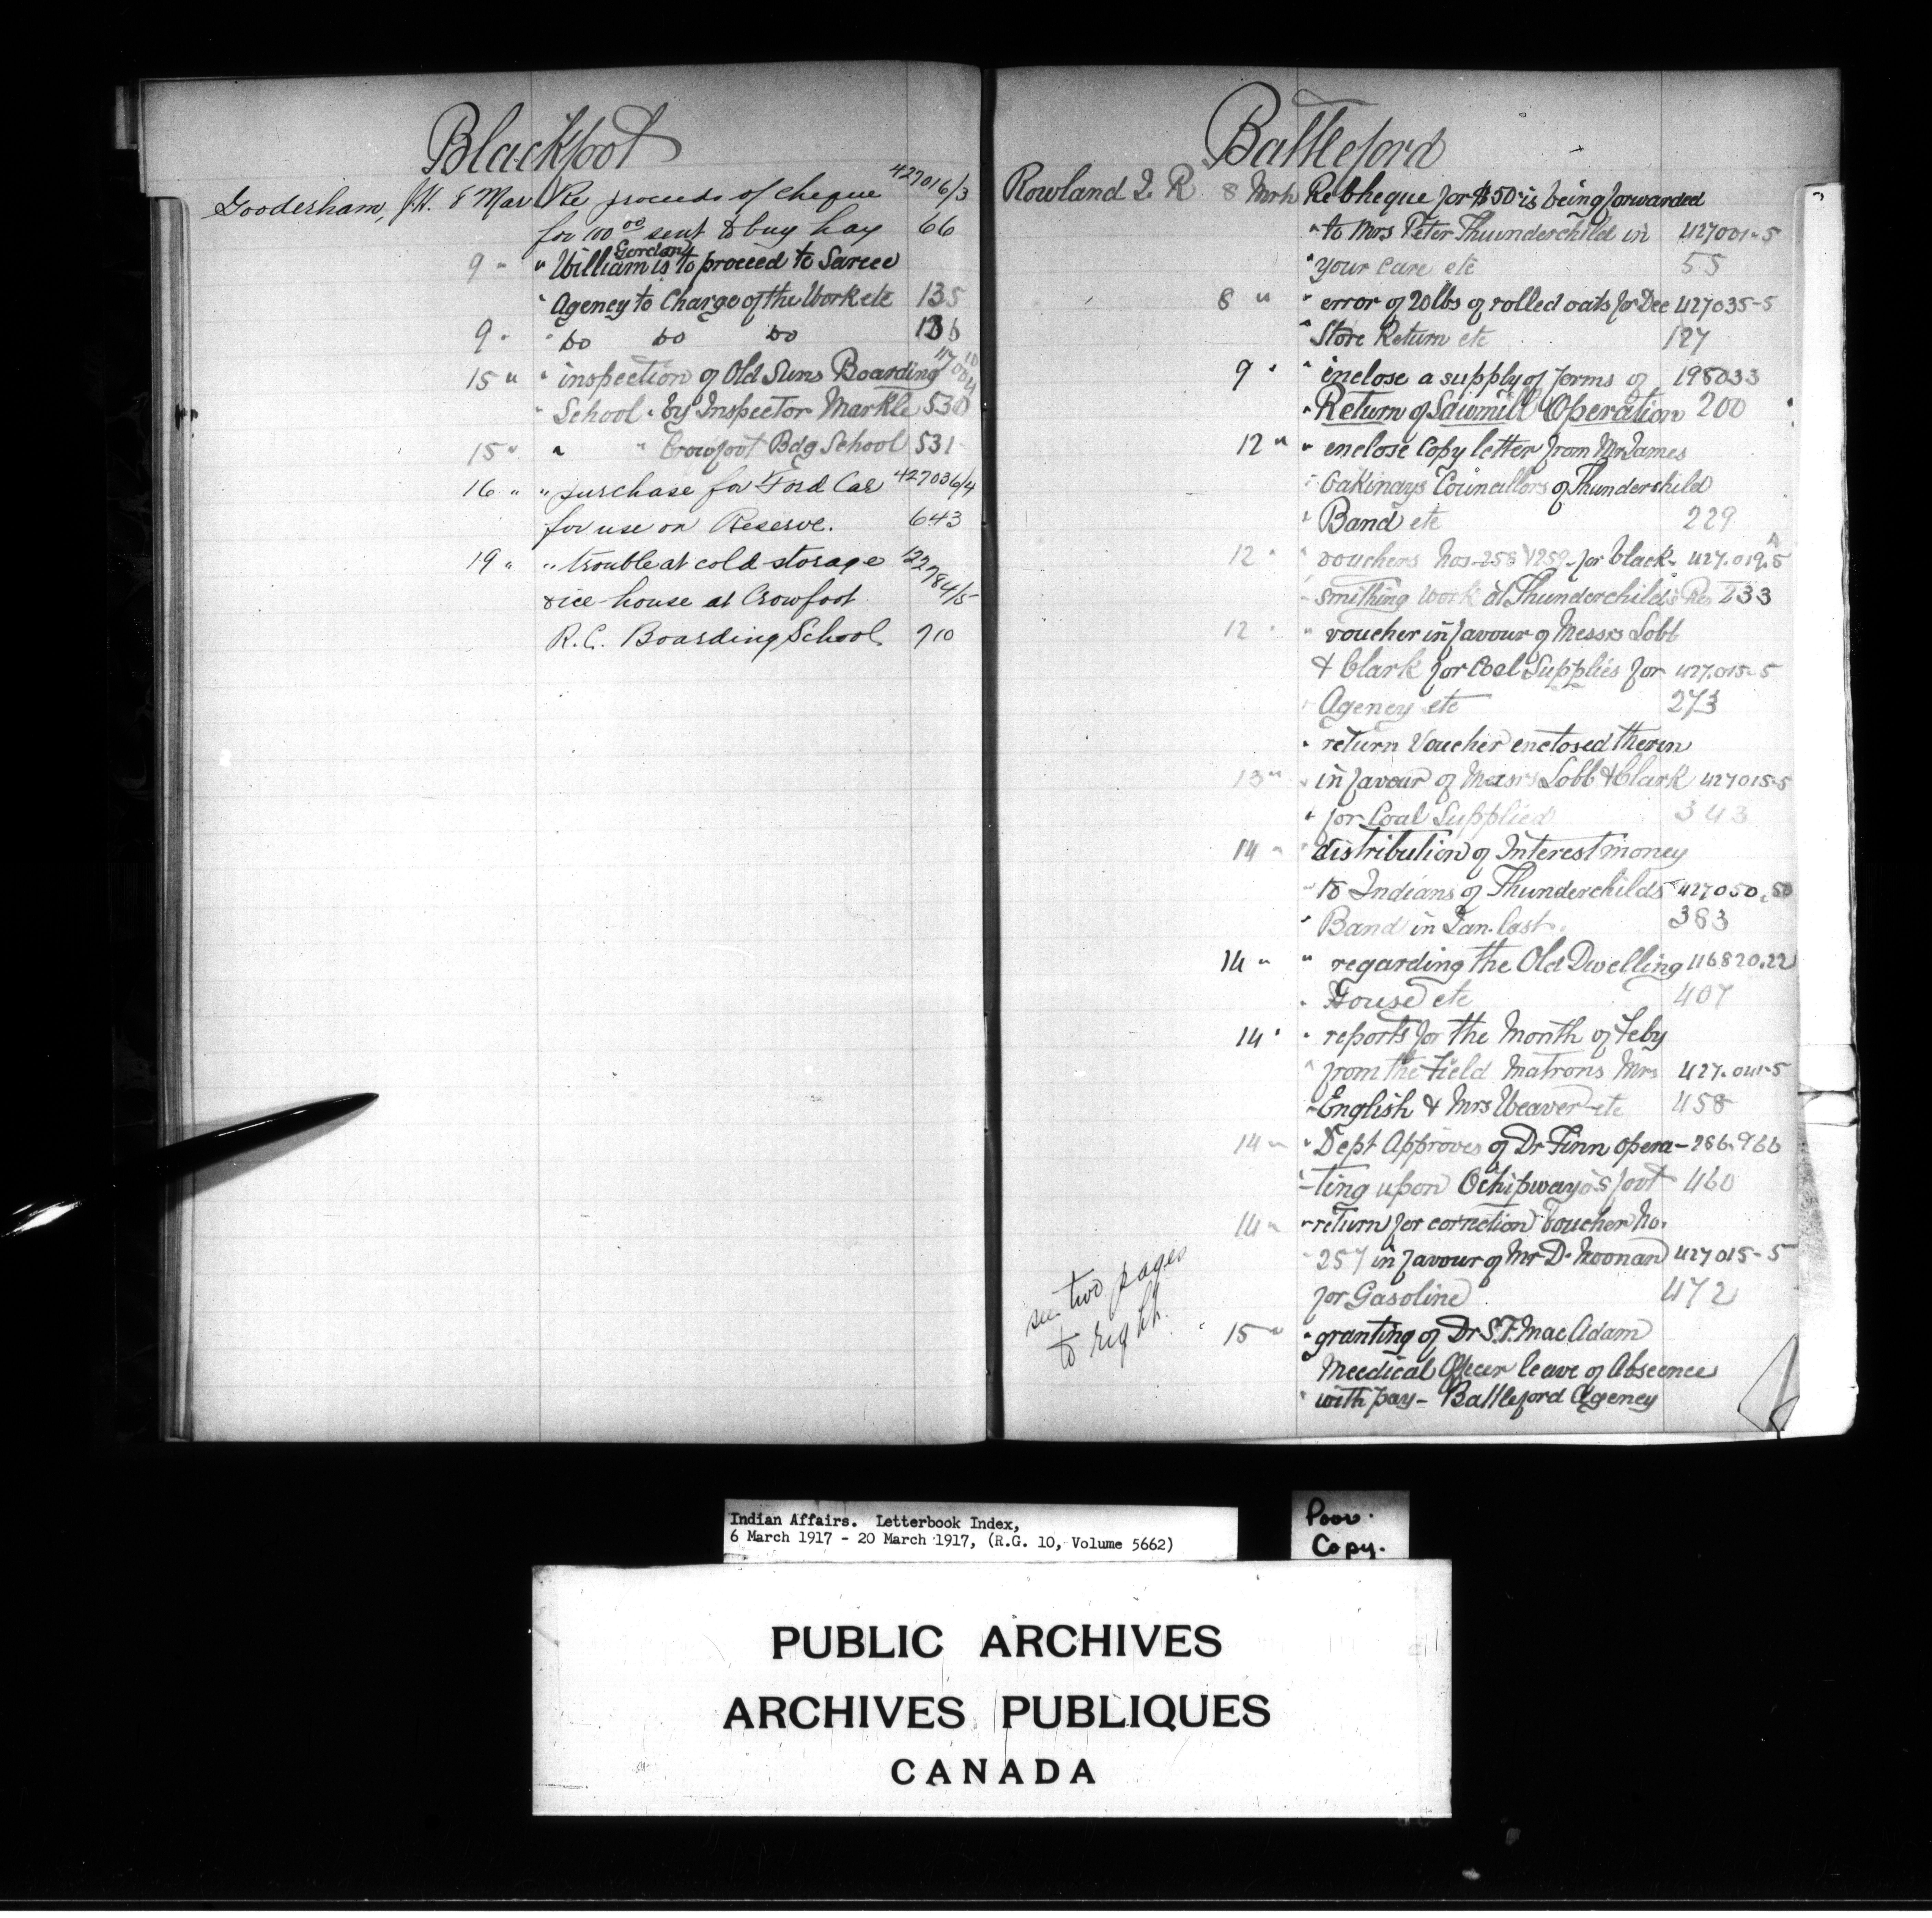 Blackfoot
Gooderham, J.H. 8 Mar Re proceeds of cheque 427016/3
for 100 00 sent to buy hay 66
9 " " William Gordon is to proceed to Sarcee
" Agency to Charge of the Work etc 135
9 " " Do Do Do 136
15 " " inspection of Old Suns Boarding
" School " by Inspector Markle 530
15 " " " Crowfoot Bdg School 531
16 " " purchase for Ford Car 427036/4
for use on Reserve. 643
19 " " trouble at cold storage
& ice house at Crowfoot
R.C. Boarding School 710
Battleford
Rowland J R 8 Mrh Re Cheque for $50 is being forwarded
" to Mrs Peter Thunderchild in 427001-5
" your care etc 55
8 " " error of 20 lbs of rolled oats for Dec 427035-5
" Store Return etc 127
9 " " enclose a supply of forms of 198033
" Return of Sawmill Operation 200
12 " " enclose Copy letter from Mr James
" Councillors of Thunderchild
" Band etc 229
12 " " vouchers Nos. 258 & 259 for black- 427.019.5
" smithing work at Thunderchild's Res 233
12 " " voucher in favour of Messrs Lobb
& Clark for Coal Supplies for 427.015-5
" Agency etc 273
" return Voucher enclosed therin
13 " " in favour of Messrs Lobb & Clark 427015-5
" for Coal Supplied 343
14 " " distribution of Interest money
" to Indians of Thunderchilds 427050.50
" Band in Jan. last. 383
14 " " regarding the Old Dwelling 116820.22
" House etc 407
14 " " reports for the Month of Feby
" from the Field Matrons Mrs 427.041-5
" English & Mrs Weaver etc 458
14 " " Dept Approves of Dr Finn opera- 286.960
-ting upon Ochipwayo's foot 460
14 " " return for correction Voucher No.
" 257 in favour of Mr D. Noonan 427015-5
for Gasoline 472
see two pages
to right.
15 " " granting of Dr S.F. MacAdam
Meedical Officer leave of Abscence
" with pay - Battleford Agency
Indian Affairs. Letterbook Index,
6 March 1917 - 20 March 1917, (R.G. 10, Volume 5662)
Poor.
Copy.
PUBLIC ARCHIVES
ARCHIVES PUBLIQUES
CANADA